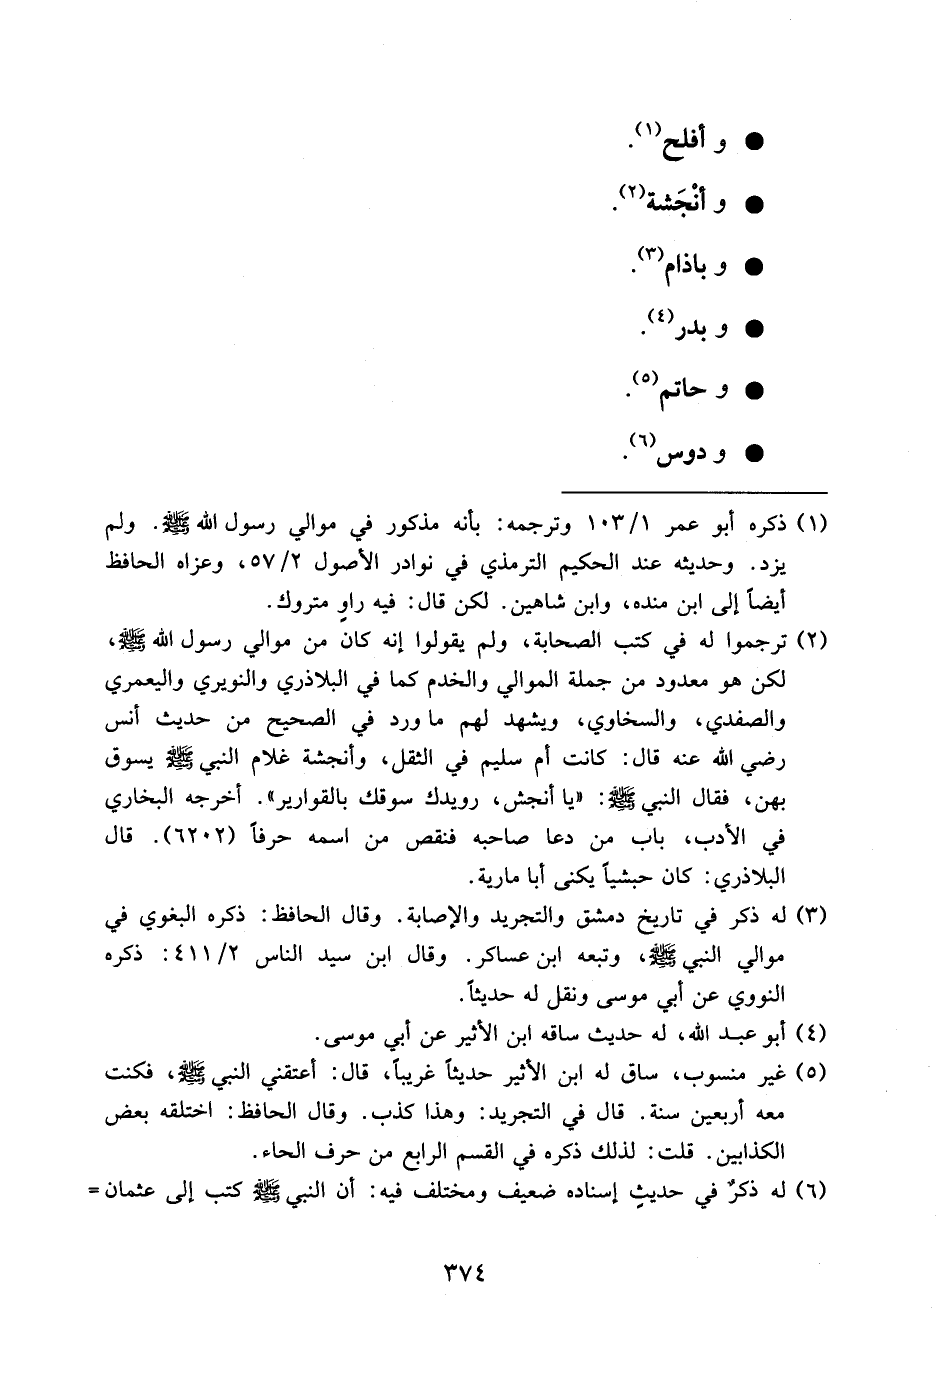 ● و أفلح(١).
● و أنْجَشة(٢).
● و باذام(٣).
● و بدر(٤).
● و حاتم(٥).
● و دوس(٦).
(١) ذكره أبو عمر ١٠٣/١ وترجمه: بأنه مذكور في موالي رسول الله ﷺ. ولم
يزد. وحديثه عند الحكيم الترمذي في نوادر الأصول ٥٧/٢، وعزاه الحافظ
أيضاً إلى ابن منده، وابن شاهين. لكن قال: فيه راوٍ متروك.
(٢) ترجموا له في كتب الصحابة، ولم يقولوا إنه كان من موالي رسول الله ﷺ،
لكن هو معدود من جملة الموالي والخدم كما في البلاذري والنويري واليعمري
والصفدي، والسخاوي، ويشهد لهم ما ورد في الصحيح من حديث أنس
رضي الله عنه قال: كانت أم سليم في الثقل، وأنجشة غلام النبي ﷺ يسوق
بهن، فقال النبي ﷺ: «يا أنجش، رويدك سوقك بالقوارير». أخرجه البخاري
في الأدب، باب من دعا صاحبه فنقص من اسمه حرفاً (٦٢٠٢). قال
البلاذري: كان حبشياً يكنى أبا مارية.
(٣) له ذكر في تاريخ دمشق والتجريد والإصابة. وقال الحافظ: ذكره البغوي في
موالي النبي ﷺ، وتبعه ابن عساكر. وقال ابن سيد الناس ٤١١/٢: ذكره
النووي عن أبي موسى ونقل له حديثاً.
(٤) أبو عبد الله، له حديث ساقه ابن الأثير عن أبي موسى.
(٥) غير منسوب، ساق له ابن الأثير حديثاً غريباً، قال: أعتقني النبي ﷺ، فكنت
معه أربعين سنة. قال في التجريد: وهذا كذب. وقال الحافظ: اختلقه بعض
الكذابين. قلت: لذلك ذكره في القسم الرابع من حرف الحاء.
(٦) له ذكرٌ في حديثٍ إسناده ضعيف ومختلف فيه: أن النبي ﷺ كتب إلى عثمان =
٣٧٤